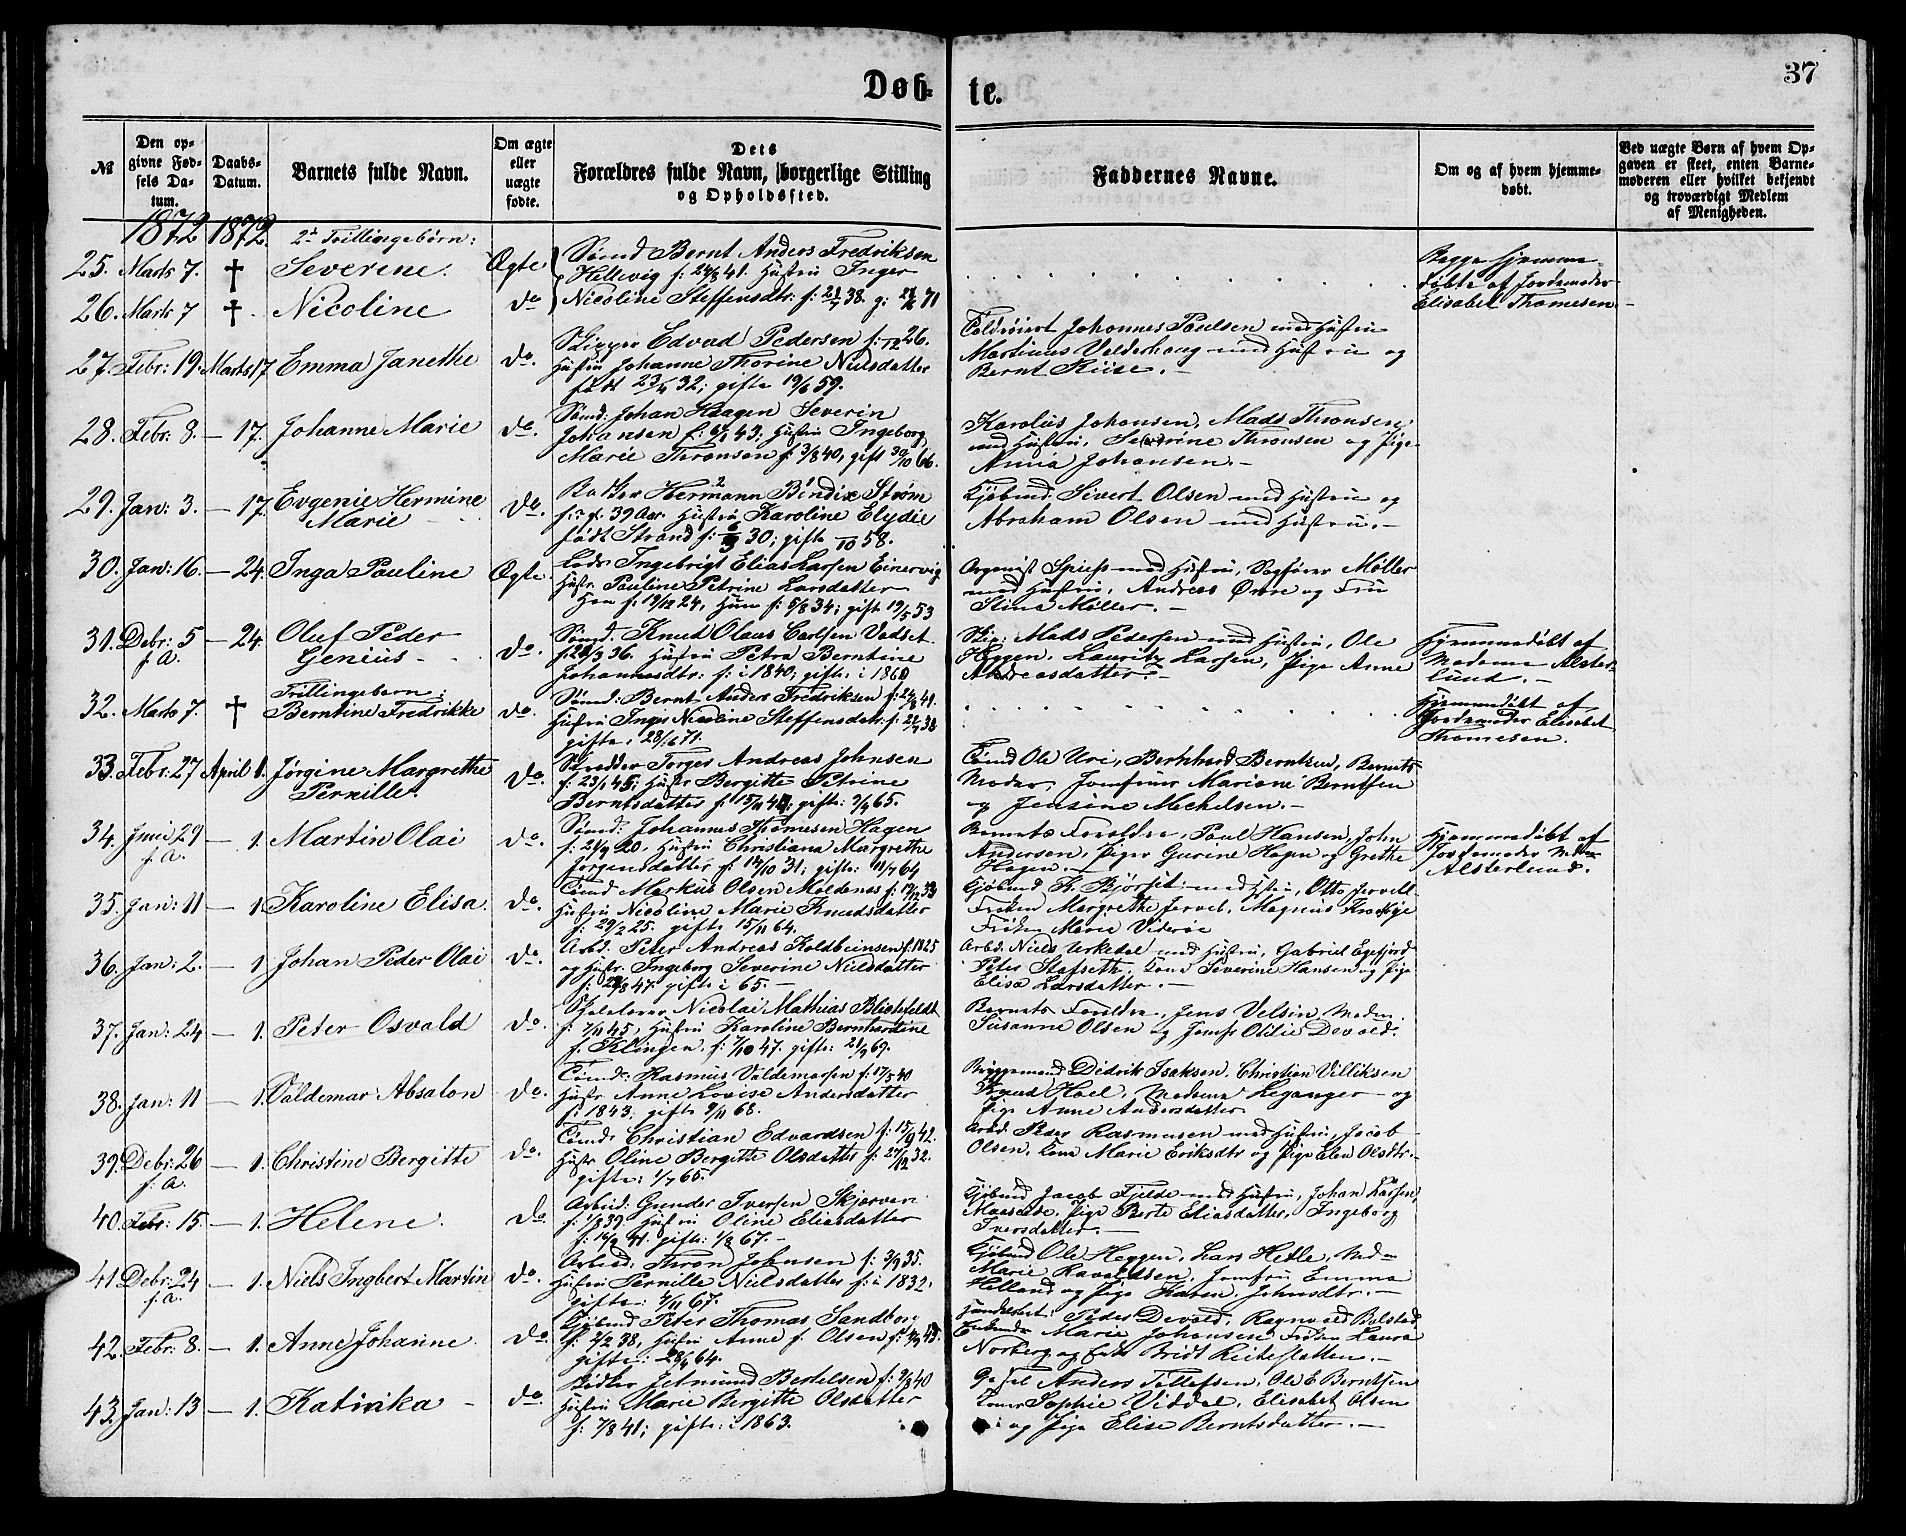 Døb-
te.
37
№
Den op-
givne Fød-
sels Da-
tum.
Daabs-
Datum.
Barnets fulde Navn.
Om ægte
eller
uægte
fødte.
Dets
Forældres fulde Navn, borgerlige Stilling
og Opholdssted.
Faddernes Navne.
Om og af hvem hjemme-
døbt.
Ved uægte Børn af hvem Op-
gaven er skeet, enten Barne-
moderen eller hvilket bekjendt
og troværdigt Medlem
af Menigheden.
1872 1872. 2de Trillingebørn:
25. Marts 7. † Severine. Ægte Sømd Bernt Anders Fredriksen
Hellevig f: 24/8 41. Hustru Inger
Begge hjemme-
døbte af Jordemoder
Elisabet Thomesen.
26. Marts 7 † Nicoline do Nicoline Steffensdtr: f: 21/7 38. g: 71
27. Febr: 19. Marts 17 Emma Janethe do. Skipper Edvad Pedersen f: 26.
Hustru Johanne Thorine Nielsdatter
født 23/4 32; gifte 19/6 59.
Toldroiert Johannes Paulsen med Hustru
Martinus Valderhaug med Hustru og
Bernt Riise.
28. Febr: 8. — 17. Johanne Marie do. Sømd: Johan Haagen Severin
Johansen f: 43; Hustru Ingeborg
Marie Thronsen f: 3/8 40, gift 30/10 66.
Karolus Johansen, Mads Thronsen
med Hustru, Severine Thronsen og Pige
Anna Johansen.
29. Jan: 3. — 17. Evgenie Hermine
Marie do. Hermann Bendix Strøm
39 Aar. Hustru Karoline Elydie
født Strand f: 30; gifte /10 58.
Gjøbmd: Sivert Olsen med Hustru og
Abraham Olsen med Hustru.
30. Jan: 16. — 24. Inga Pauline Ægte. Lods Ingebrigt Elias Larsen Einervig
Hustr. Pauline Petrine Larsdatter
Han f. 19/12 24, Hun f: 5/8 34; gifte 19/5 53
Organist Spiess med Hustru, Sagfører Møller
med Hustru, Andreas Ørre og Fru
Stina Møller.
31. Debr: 5
f. A. — 24. Oluf Peder
Genius do. Sømd. Knud Olaus Carlsen Vadset
36. Hustru Petra Berntine
Johannesdtr: f: i 1840; gifte: i 1860
Skip: Mads Pedersen med Hustru, Ole
Heggen, Lauritz Larsen, Pige Anne
Andreasdatter.
Hjemmedøbt af
Madame Alster-
lund.
32. Marts 7. † Trillingebarn:
Berntine Fredrikke do. Sømd: Bernt Anders Fredriksen f: 24/8 41.
Hustru Inger Nicoline Steffensdatr. f: 21/7 38
gifte: 71.
Hjemmedøbt af
Jordemoder Elisabet
Thomesen.
33. Febr: 27 April 1. Jørgine Margrethe
Pernille. do. Skrædder Torger Andreas Johnsen
f: 23/1 45; Hustr Bergitte Petrine
Berntsdatter f: 15/11 42; gifte: 65.
Tømd Ole Uri, Bernhard Berntsen, Barnets
Moder, Jomfruer Mariane Berntsen
og Jensine Mechelsen.
34. Juni 29
f. A. — 1. Martin Olai do. Sømd: Johannes Thomesen Hagen
f: 21/9 20, Hustru Christiana Margrethe
Jørgensdatter f: 14/10 31; gifte: 11/7 64
Barnets Forældre, Paul Hansen, John
Andersen, Piger Gurine Hagen og Grethe
Hagen.
Hjemmedøbt af
Jordemoder Madm
Alsterlund.
35. Jan: 11 — 1. Karoline Elisa. do. Tømd Markus Olsen Moldenes f: 19/12 33
Hustru Nicoline Marie Knudsdatter
f: 29/2 25. gifte 15/11 64.
Gjøbmd Th. Bjørset med Hstru, Otto Jervell
Frøken Margrethe Jervel, Magnus Krohbye
Frøken Marie Viderøe
36. Jan: 2. — 1. Johan Peder Olai do. Arbd: Peter Andreas Koldbeinsen f. 1825
og Hustr. Ingeborg Severine Nielsdatter
47. gifte i 65.
Arbd: Niels Urkedal med Hustru, Gabriel Egesfjord
Peter Stafseth, Kone Severine Hansen og Pige
Elisa Larsdatter.
37. Jan: 24 — 1. Peter Osvald do. Skolelærer Nicolai Mathias Blichfeldt
f: 7/11 45, Hustru Karoline Bernhardine
f. Klingen, f: 7/10 47. gifte: 21/9 69.
Barnets Forældre, Jens Velsin, Madm.
Susanne Olsen og Jomfr. Otilie Devold.
38. Jan: 11 — 1. Valdemar Absalon do. Tømd: Rasmus Valdemarsen f: 17/5 40
Hustr Anne Lovise Andersdatter
f: 1843; gifte 9/11 68.
Bryggemand Didrik Isaksen, Christian Villiksen
Knud Hoel, Madame Leganger og
Pige Anne Andersdatter
39. Debr: 26
f: A. — 1. Christine Bergitte do. Tømd: Christian Edvardsen f: 15/9 42.
Hustr Oline Bergitte Olsdatter f: 27/12 32.
gifte: 1/7 65.
Arbd. Peder Rasmusen med Hustru, Jacob
Olsen, Kone Marie Eriksdtr og Pige Elen Olsdtr.
40. Febr: 15. — 1. Helene. do Arbeid: Gunder Iversen Skjerven
f: 1/8 39 Hustru Oline Eliasdatter
f: 16/9 41. gifte: 1/8 67.
Gjøbmd Jacob Fjelde med Hustru, Johan Larsen
Maaseide, Pige Berte Eliasdatter, Ingeborg
Iversdatter.
41 Debr: 24
f: A. — 1. Niels Ingbert Martin do. Arbeid. Thron Johnsen f: 3/9 35.
Hustru Pernille Nielsdatter f: i 1832.
gifte: 4/11 67.
Gjøbmd Ole Heggen, Lars Hetle, Mad=
Marie Havaldsen, Jomfru Emma
Helland og Pige Karen Johnsdtr.
42. Febr: 8. — 1. Anne Johanne do. Gjøbmd Peter Thomas Sandborg
f: 2/2 38, Hustru Anne f. Olsen
gifte: 64.
Handelsbet: Peder Devold, Ragnvald Bolstad
Marie Johansen Frøken Laura
Norberg og Bridt Reitestøtten.
43. Jan: 13 — 1. Katinka do. Bødker Jetmund Bertelsen f: 40
Hustru Marie Birgitte Olsdatter
f: 7/8 41; gifte: i 1863.
Anders Tollefsen, Ole E Berntsen
Kone Sophie Viddal, Elisabet Olsen
og Pige Elise Berntsdatter.